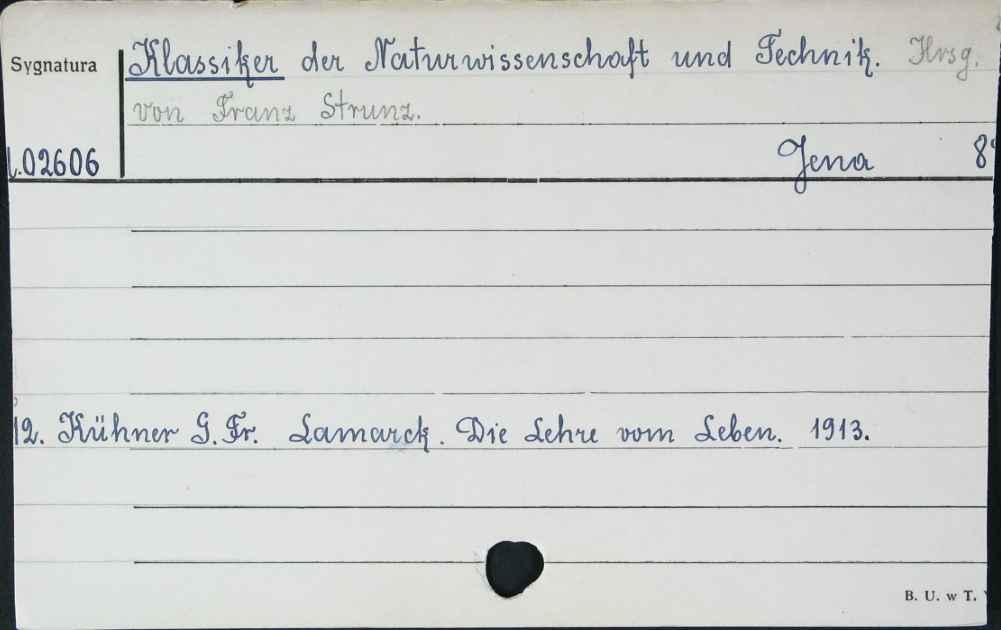 Sygnatura Klassiker der Naturwissenschaft und Technik. Hrsg.
von Franz Strunz.
02606 Jena 8°
12. Kühner G. Fr. Lamarck. Die Lehre vom Leben. 1913.
B. U. w T.